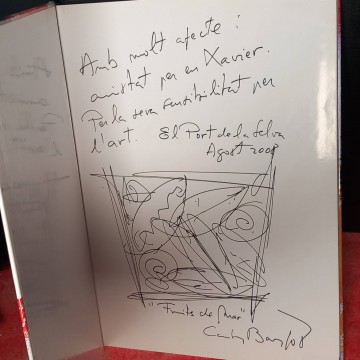 Amb molt afecte i
amistat per en Xavier.
Per la seva sensibilitat per
l'art. El Port de la Selva
Agost 2008
"Fruits de Mar"